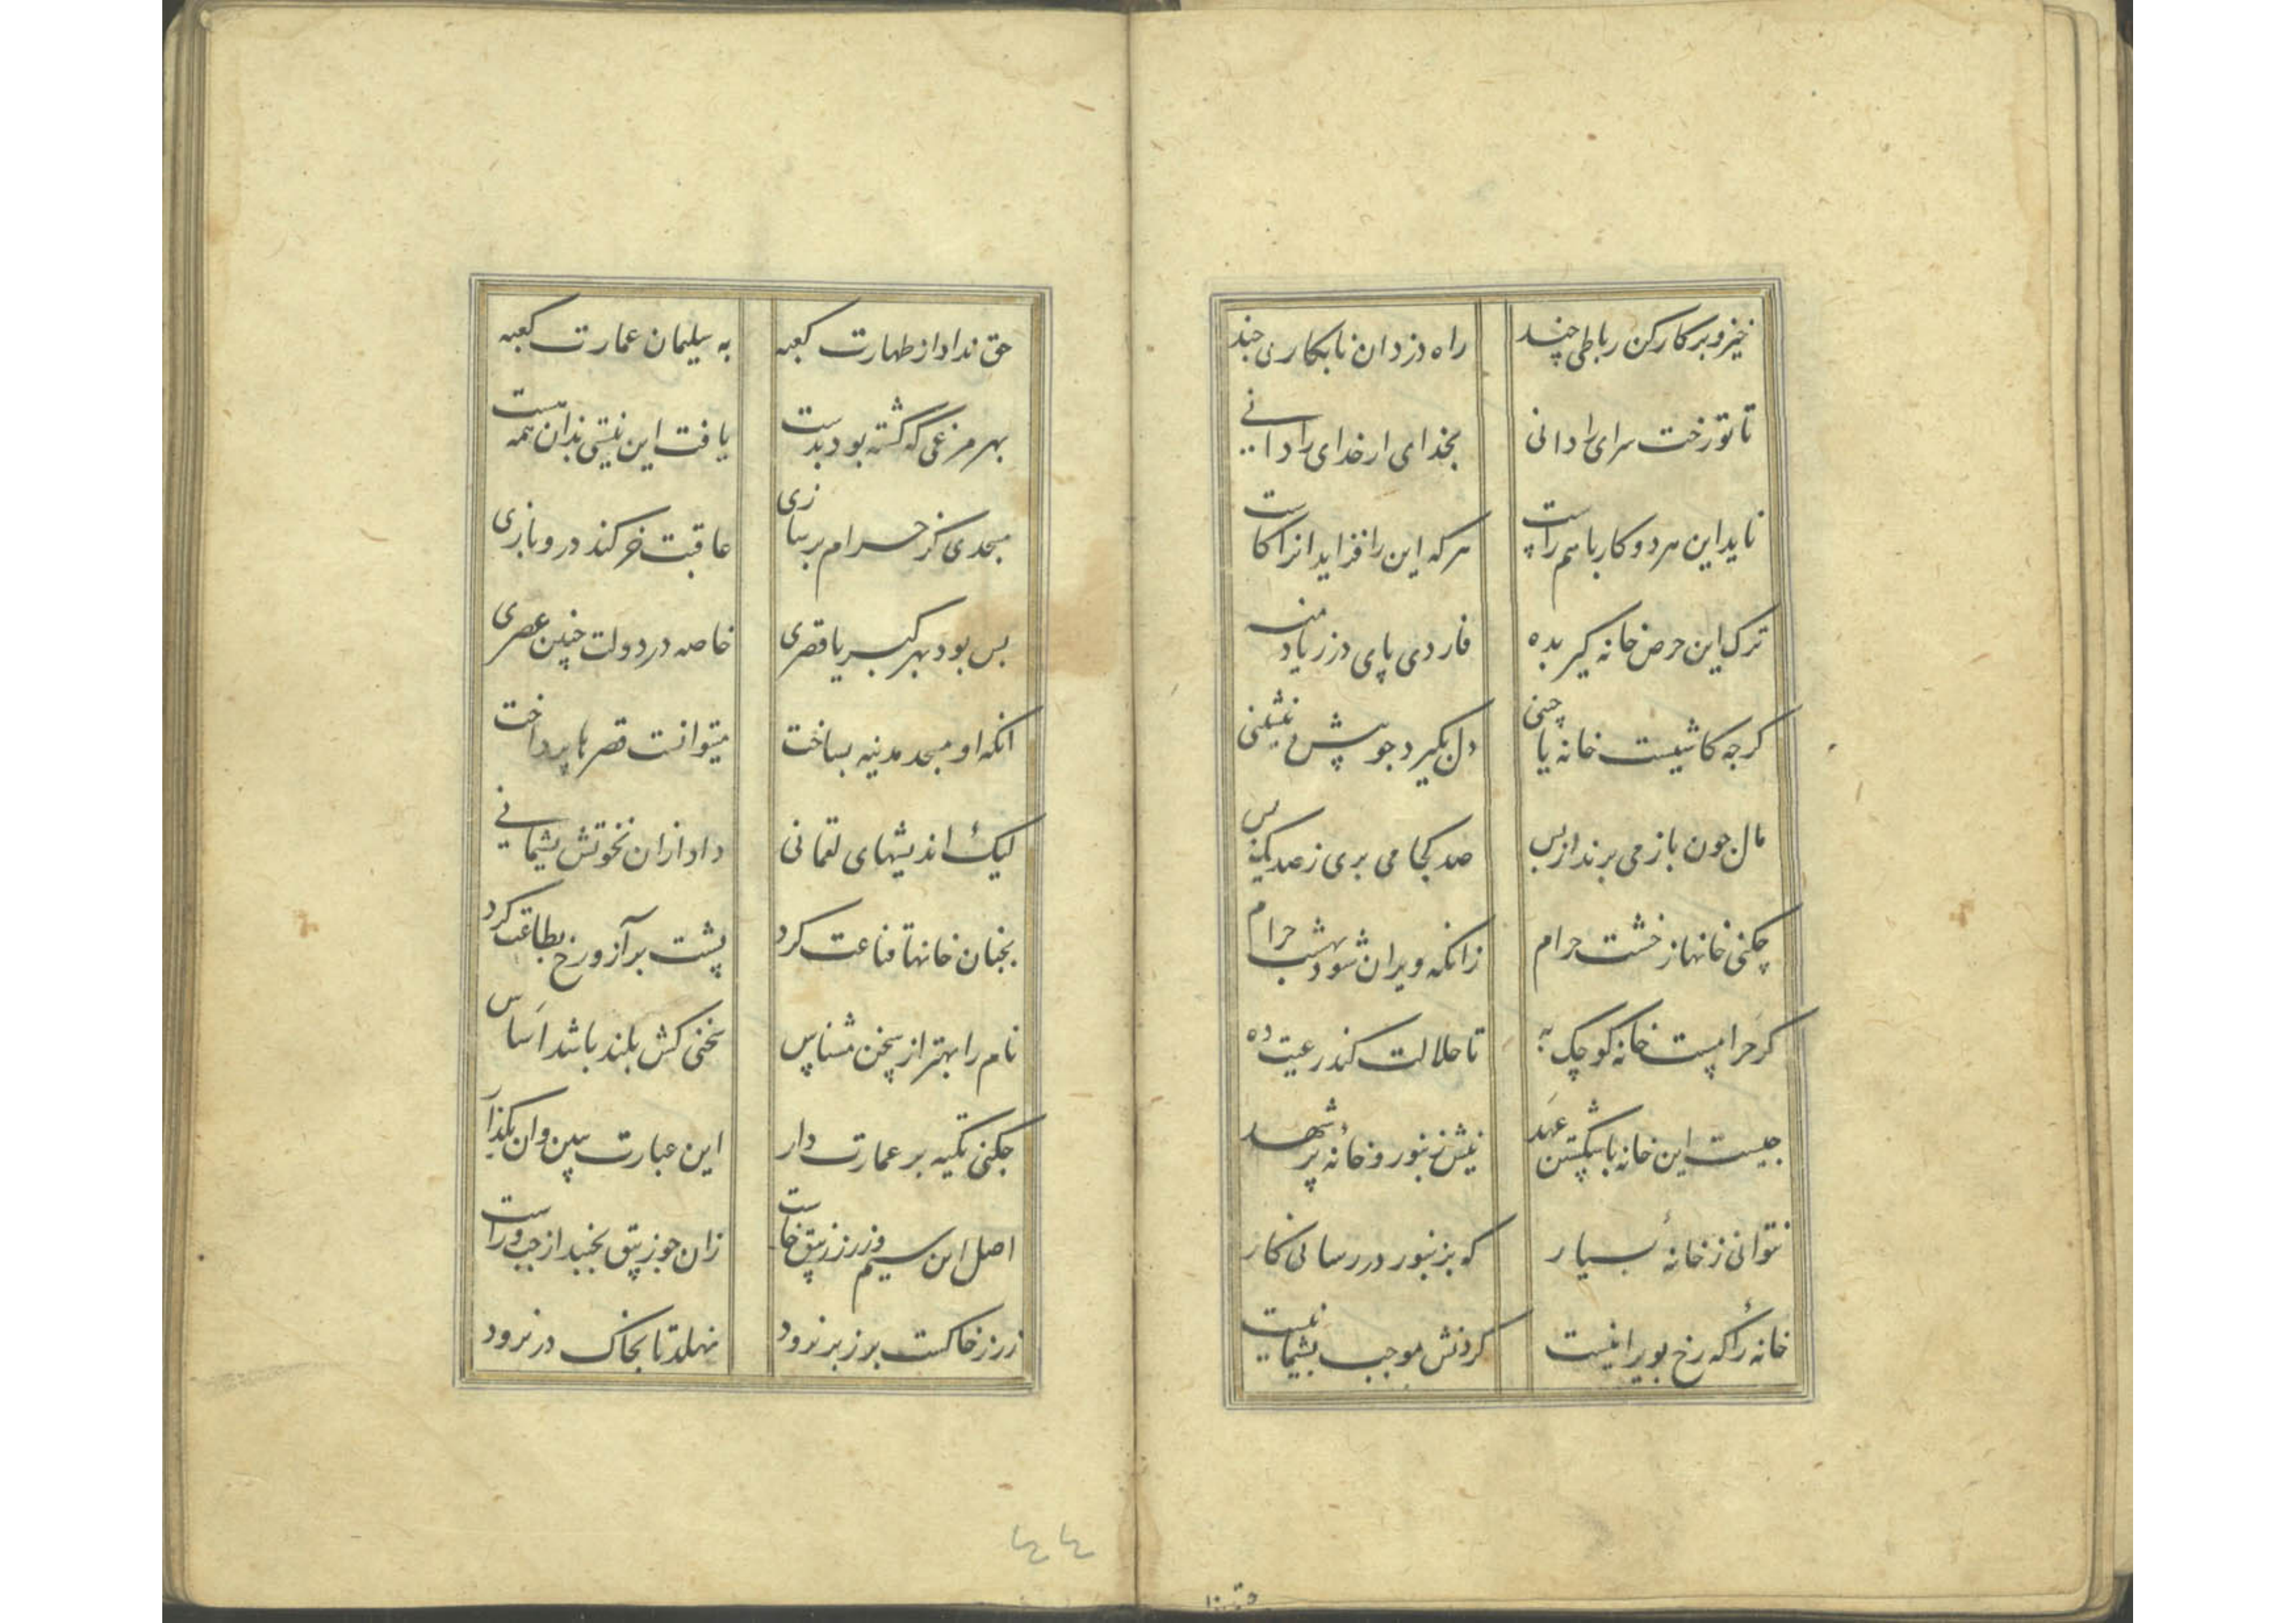 خیز و بر کار کن رباطی چند راه دزدان نابکاری چند
تا تو رخت سرای را دانی بخدای ار خدای را دانی
ناید این هر دو کار با هم راست هر که این را فزاید انرا کاست
ترک این حرض خانه گیر بده پای در زیاد منه
کرچه کاشیست خانه یا چنی دل بگیرد جو پیش نشینی
مال جون باز می برند از پس صد کجا می بری ز صد یکی بس
چکنی خانها ز خشت حرام زانکه ویران شود بهشت حرام
کر حرامست خانه کوچک به تا حلالت کند رعیت ده
جیست این خانه با شکستن عهد نیش زنبور و خانهٔ پر شهد
نتوانی ز خانهٔ بسیار که بزنبور در رسانی کار
خانهٔ را که رخ بویرانیست کردنش موجب پشیمانیست
حق نداد از طهارت کعبه به سلیمان عمارت کعبه
بهر مرغی که کشته بود بدست یافت این نیستی بدان همه هست
مسجدی کز حرام بر سازی عاقبت خر کند درو بازی
بس بود بهر کبریا قصری خاصه در دولت چنین عصری
انکه او مسجد مدینه بساخت میتوانست قصرها پرداخت
لیک اندیشهای لقمانی داد ازان نخوتش پشیمانی
بجنان خانها قناعت کرد پشت بر آز و رخ بطاعت کرد
نام را بهتر از سخن مشناس سخنی کش بلند باشد اساس
جکنی تکیه بر عمارت دار این عبارت ببین وان بکذار
اصل این سیم و زر ز زیبق خاست زان جو زیبق بجنبد از چپ و راست
زر ز خاکست بر زبر نرود نهلد تا بخاک در نرود
۴۴